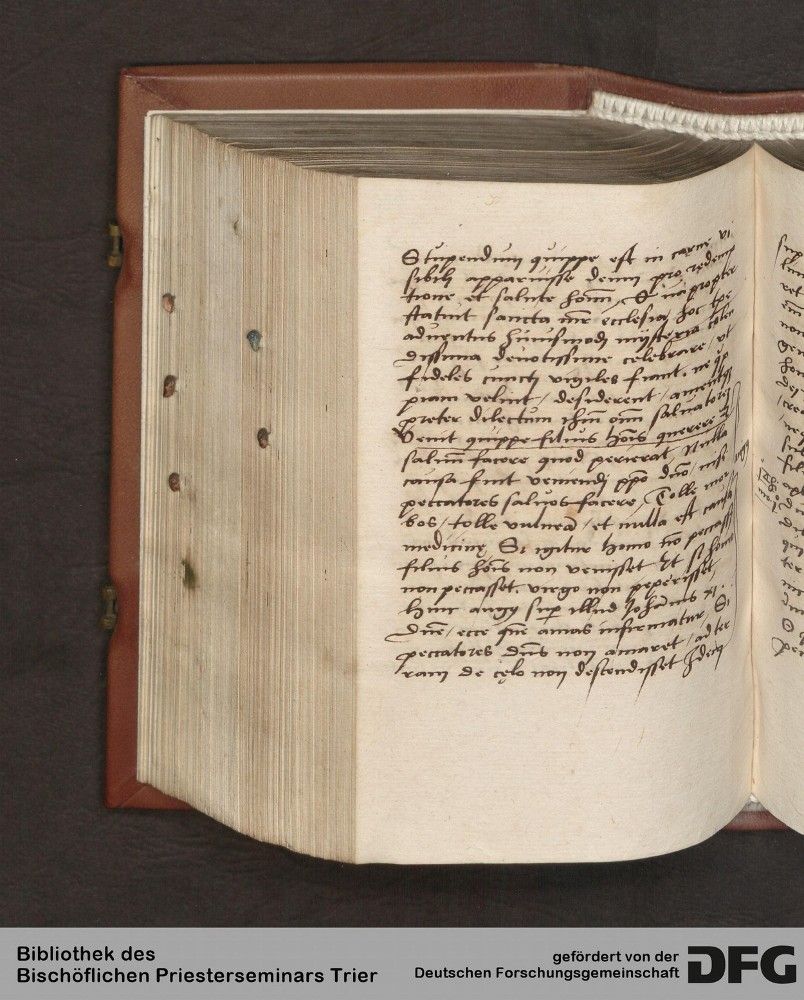 Stupendum quippe est in carne vi
sibili apparuisse deum pro redemp
tione et salute hoim, Et
statuit sancta mr̄e ecclesia, hoc tpe
adventus huiusmodi mysteria
dissima devotissime celebrare, ut
fideles cuncti vigiles fiant, ne
piam velint, desiderent,
preter dilectum ihm oim salvatorē
Venit quippe filius hois querere et
salūm facere quod perierat Nulla
causa fuit veniendi xpō dnō, nisi
peccatores salvos facere, Tolle mor
bos, tolle vulnera, et nulla est causa
medicinę, Si igitur homo nō peccass
filius hois non venisset Et si homo
non peccasset, virgo non peperisset,
Hinc augꝰ sup illud Johannis xi.
Dnē, ecce quē amas infirmatur, Si
peccatores dns non amaret, ad ter
ram de cęlo non descendisset Idem
Bibliothek des
Bischöflichen Priesterseminars Trier
gefördert von der
Deutschen Forschungsgemeinschaft
DFG